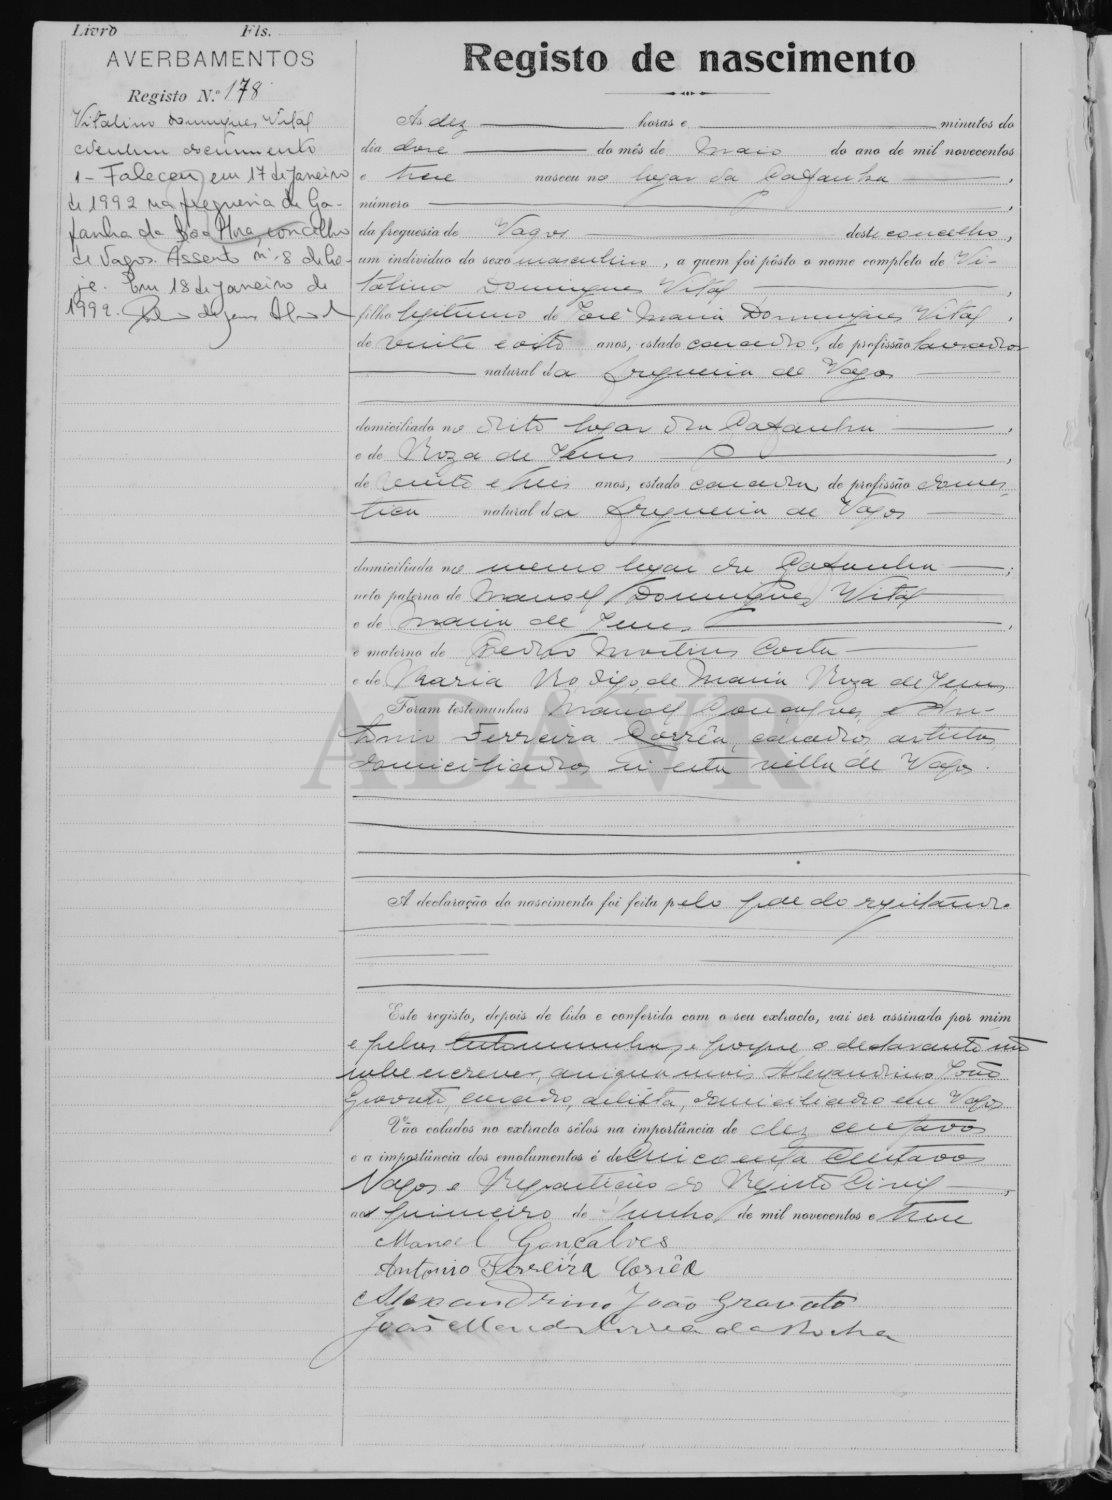 Livro Fls.
AVERBAMENTOS
Registo N.º 178
Vitalino Domingues Vital
nenhum documento
1 - Faleceu em 17 de Janeiro
de 1992 na freguesia da Ga-
fanha da Boa Hora, concelho
de Vagos. Assento nº 8 de ho-
je. Em 18 de Janeiro de
1992.
Registo de nascimento
Ás dez horas e minutos do
dia doze do mês de Maio do ano de mil novecentos
e treze nasceu no logar da Gafanha,
número
da freguesia de Vagos deste concelho,
um individuo do sexo masculino, a quem foi pôsto o nome completo de Vi-
talino Domingues Vital,
filho legitimo de José Maria Domingues Vital,
de vinte e oito anos, estado casado, de profissão lavrador
natural da freguesia de Vagos
domiciliado no dito logar da Gafanha,
e de Roza de Jesus,
de vinte e tres anos, estado casada, de profissão domes-
tica natural da freguesia de Vagos
domiciliada no mesmo logar da Gafanha;
neto paterno de Manoel Domingues Vital
e de Maria de Jesus,
e materno de Pedro Martins Costa
e de Maria Roza, digo, de Maria Roza de Jesus
Foram testemunhas Manoel Gonçalves e An-
tonio Ferreira Corrêa, casados, artistas,
domiciliados em esta villa de Vagos.
ADAVR
A declaração do nascimento foi feita pelo pae do registando.
Este registo, depois de lido e conferido com o seu extracto, vai ser assinado por mim
e pelas testemunhas, e porque o declarante não
sabe escrever, assigna mais Alexandrino João
Gravato, casado, artista, domiciliado em Vagos
Vão colados no extracto sêlos na importância de dez centavos
e a importância dos emolumentos é de Cincoenta Centavos
Vagos e Repartição do Registo Civil,
aos primeiro de Junho de mil novecentos e treze
Manoel Gonçalves
Antonio Ferreira Corrêa
Alexandrino João Gravato
João Mendes Correa da Rocha